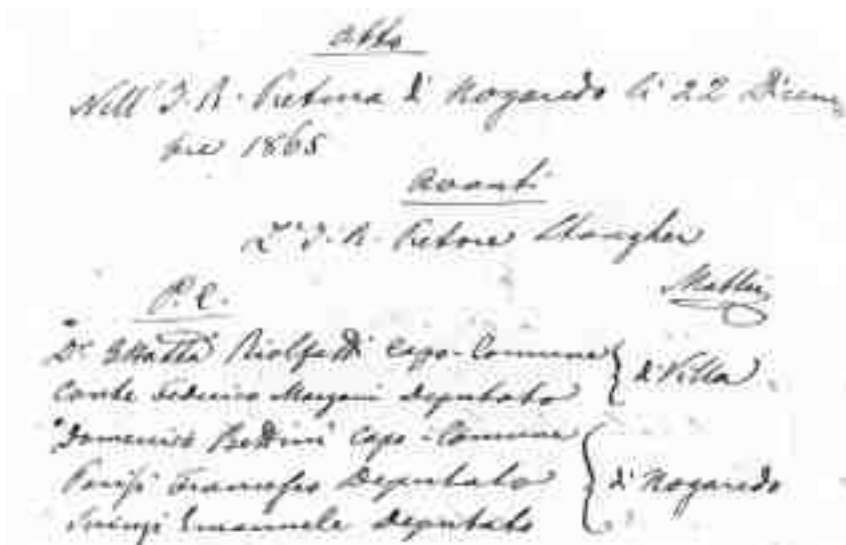 Atto
Nell' I. R. Pretura di Nogaredo li 22 Dicem
bre 1865
Avanti
L' I. R. Pretore
P. C.
Dr. Riolfatti Capo-Comune
Conte Federico Marzani Deputato } di Villa
Domenico Bettini Capo-Comune
Parisi Francesco Deputato } di Nogaredo
Emanuele Deputato